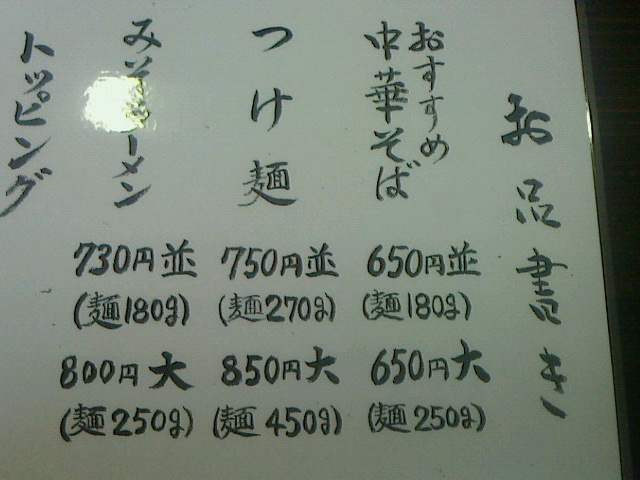 お品書き
おすすめ
中華そば
650円並
(麺180g)
650円大
(麺250g)
つけ麺
750円並
(麺270g)
850円大
(麺450g)
みそラーメン
730円並
(麺180g)
800円大
(麺250g)
トッピング